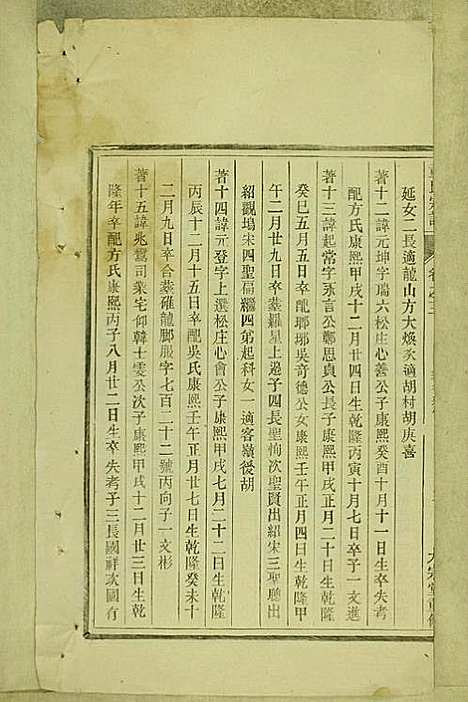 延女二長適龍山方大煥次適胡村胡庚喜
著十二諱元坤字瑞六松庄心養公子康熙癸酉十月十一日生卒失考
配方氏康熙甲戌十二月廿四日生乾隆丙寅十月七日卒子一文進
著十三諱起常字永言公鄭思貞公長子康熙甲戌正月二十日生乾隆
癸巳五月五日卒配瑯琊吳奇德公女康熙壬午正月四日生乾隆甲
午二月廿九日卒墓羅星上邊子四長聖恂次聖賢出紹宋三聖聽出
紹觀塢宋四聖扁繼四弟起科女一適客嶺後胡
著十四諱元登字上選松庄心會公子康熙甲戌七月二十二日生乾隆
丙辰十二月十五日卒配吳氏康熙壬午正月廿七日生乾隆癸未十
二月九日卒合葬碓龍脚服字七百二十二號丙向子一文彬
著十五諱兆鶩司業宅仰韓士雯公次子康熙甲戌十二月廿三日生乾
隆年卒配方氏康熙丙子八月廿二日生卒失考子三長國祥次國有